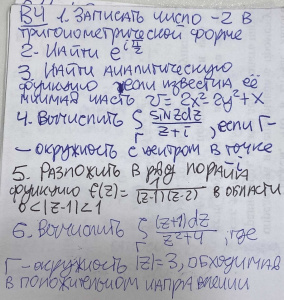 ВЧ 1. Записать число -2 в
тригонометрической форме
2. Найти e^{iπ/2}
3. Найти аналитическую
функцию если известна её
мнимая часть v=2x²-2y²+x
4. Вычислить ∫_Γ sinzdz/(z+i), если Γ-
- окружность с центром в точке
5. Разложить в ряд Лорана
функцию f(z)=10/((z-1)(z-2)) в области
0<|z-1|<1
6. Вычислить ∫_Γ (z+1)dz/(z²+4), где
Γ-окружность |z|=3, обходимая
в положительном направлении